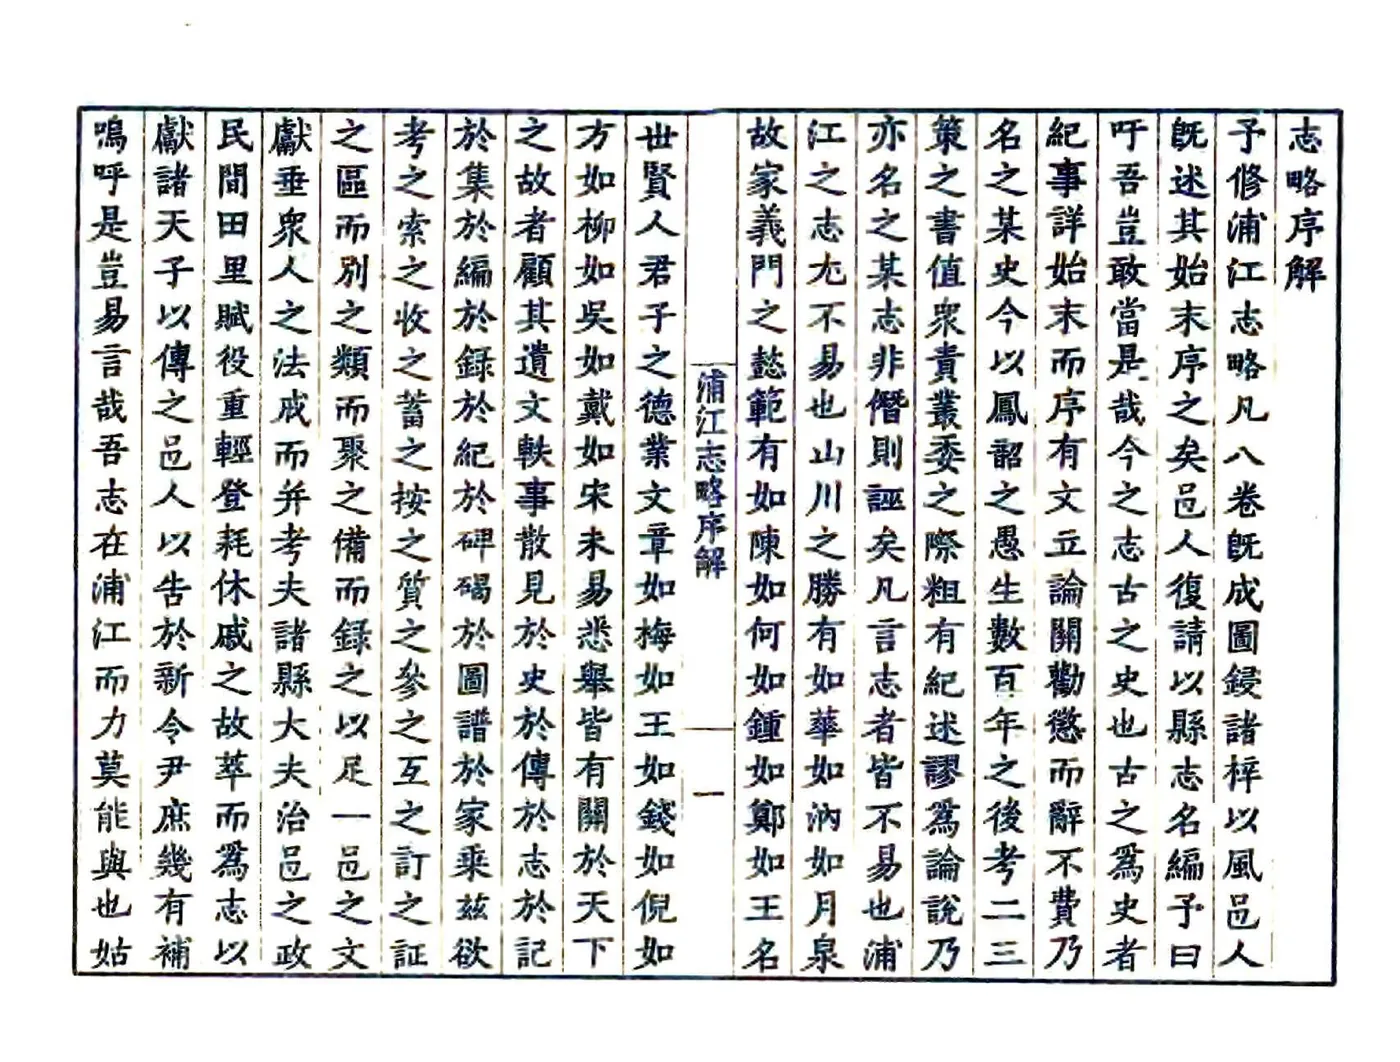 志略序解
予修浦江志略凡八卷旣成圖鋟諸梓以風邑人
旣述其始末序之矣邑人復請以縣志名編予曰
吁吾豈敢當是哉今之志古之史也古之爲史者
紀事詳始末而序有文立論關勸懲而辭不費乃
名之某史今以鳳韶之愚生數百年之後考二三
策之書值衆責叢委之際粗有紀述謬爲論說乃
亦名之某志非僭則誣矣凡言志者皆不易也浦
江之志尢不易也山川之勝有如華如汭如月泉
故家義門之懿範有如陳如何如鍾如鄭如王名
浦江志略序解
一
世賢人君子之德業文章如梅如王如錢如倪如
方如柳如吳如戴如宋未易悉舉皆有關於天下
之故者顧其遺文軼事散見於史於傳於志於記
於集於編於録於紀於碑碣於圖譜於家乘茲欲
考之索之收之蓄之按之質之參之互之訂之証
之區而別之類而聚之備而録之以足一邑之文
獻垂衆人之法戒而并考夫諸縣大夫治邑之政
民間田里賦役重輕登耗休戚之故萃而爲志以
獻諸天子以傳之邑人以告於新令尹庶幾有補
嗚呼是豈易言哉吾志在浦江而力莫能與也姑